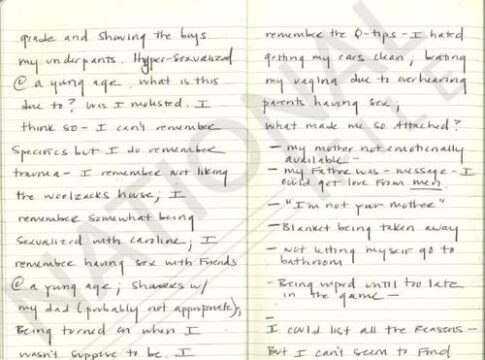 grade and showing the boys
my underpants. Hyper-sexualized
@ a young age. what is this
due to? Was I molested. I
think so - I can't remember
specifics but I do remember
trauma - I remember not liking
the woolzacks house; I
remember somewhat being
sexualized with caroline; I
remember having sex with friends
@ a young age; showers w/
my dad (probably not appropriate);
Being turned on when I
wasn't suppose to be. I
remember the Q-tips - I hated
getting my ears clean;
my vagina due to overhearing
parents having sex;
What made me so attached?
- my mother not emotionally
available -
- my father was - message - I
could get love from men
- "I'm not your mother"
- Blanket being taken away
- not letting myself go to
bathroom
- Being until too late
in the game -
-
I could list all the reasons -
But I can't seem to find
NATIONAL